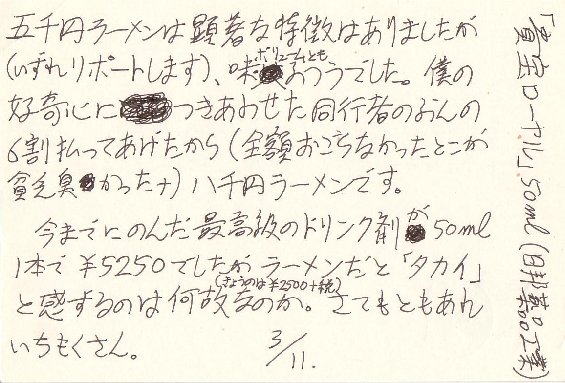 五千円ラーメンは顕著な特徴はありましたが
(いずれリポートします)、味ボリュームともふつうでした。僕の
好奇心につきあわせた同行者のぶんの
6割払ってあげたから(全額おごらなかったとこが
貧乏臭かったナ)八千円ラーメンです。
今までにのんだ最高級のドリンク剤が50ml
1本で¥5250でしたがラーメンだと「タカイ」
と感ずるのは何故なのか。さてもともあれ
(きょうのは¥2500+税)
いちもくさん。 3/11.
ローヤル」50ml(日邦薬品工業)